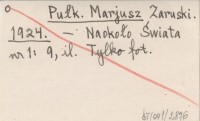 Pułk. Marjusz Zaruski.
1924. – Naokoło Świata
nr 1: 9, il. Tylko fot.